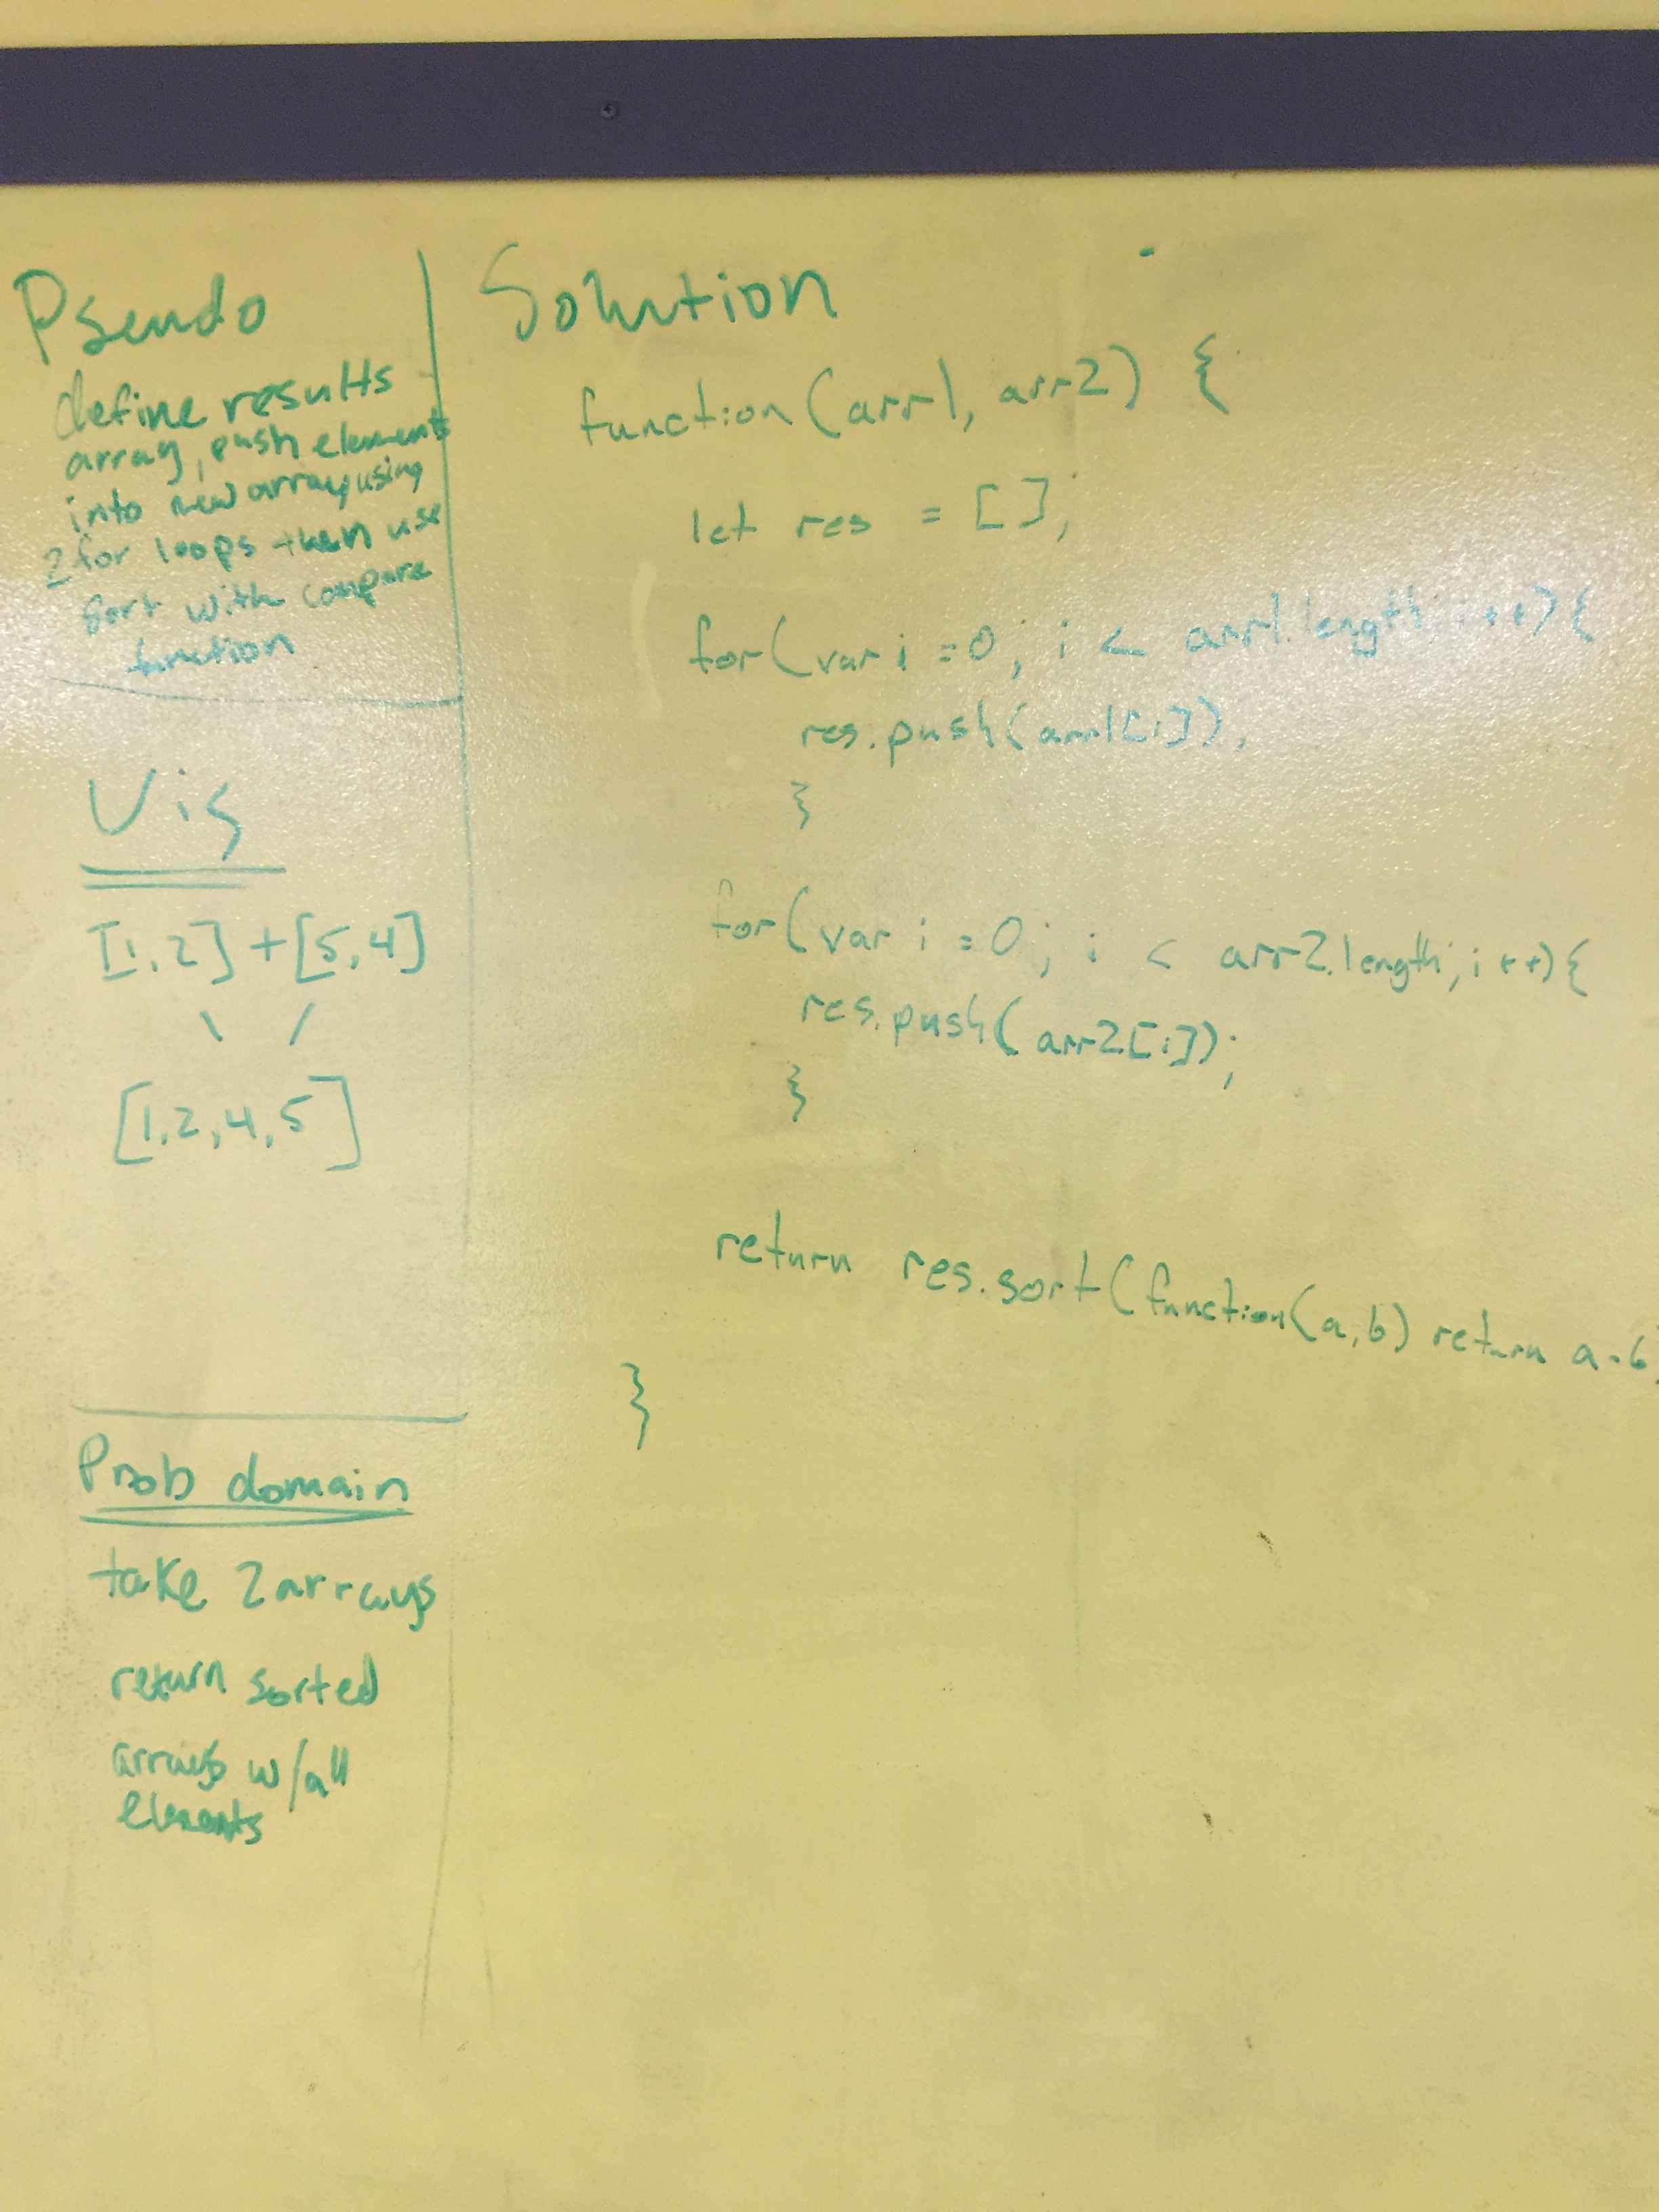 Pseudo
define results
array, push elements
into new array using
2 for loops then use
sort with compare
function
Vis
[1,2] + [5,4]
\ /
[1,2,4,5]
Prob domain
take 2 arrays
return sorted
arrays w/all
elements
Solution
function(arr1, arr2) {
let res = [];
for(var i =0; i < arr1.length; i++){
res.push(arr1[i]);
}
for(var i =0; i < arr2.length; i++){
res.push(arr2[i]);
}
return res.sort(function(a,b) return a-b
}